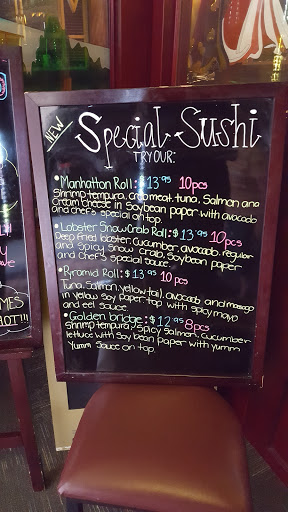 NEW
Special Sushi
TRY OUR:
• Manhattan Roll: $13.95 10pcs
Shrimp tempura, crab meat, tuna, Salmon and
Cream Cheese in Soybean paper with avocado
and chef's special on top.
• Lobster Snow Crab Roll: $13.95 10pcs
Deep fried lobster, cucumber, avocado, regular
and Spicy Snow Crab, Soybean paper
and chef's special sauce
• Pyramid Roll: $13.95 10pcs
Tuna, Salmon, yellow tail, avocado and masago
in yellow Soy paper, top with spicy mayo
and eel sauce
• Golden bridge: $12.95 8pcs
Shrimp tempura, Spicy Salmon, Cucumber
lettuce with Soy bean Paper with yumm
Yumm Sauce on top.
MES
HOT!!!